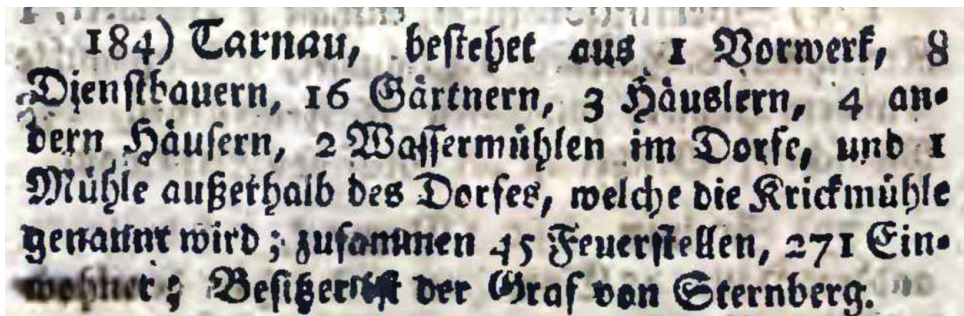 184) Tarnau, bestehet aus 1 Vorwerk, 8
Dienstbauern, 16 Gärtnern, 3 Häuslern, 4 an-
dern Häusern, 2 Wassermühlen im Dorfe, und 1
Mühle außerhalb des Dorfes, welche die Krickmühle
genannt wird; zusammen 45 Feuerstellen, 271 Ein-
wohner; Besitzer ist der Graf von Sternberg.